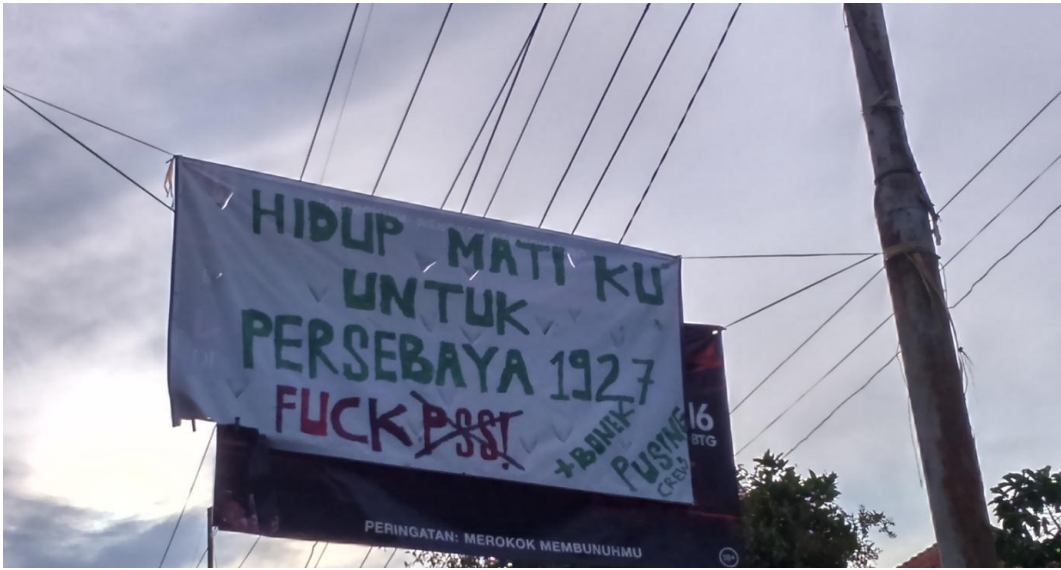 HIDUP MATI KU
UNTUK
PERSEBAYA 1927
FUCK PSSI
+BONEK
PUSING
CREW
16
BTG
PERINGATAN: MEROKOK MEMBUNUHMU
18+